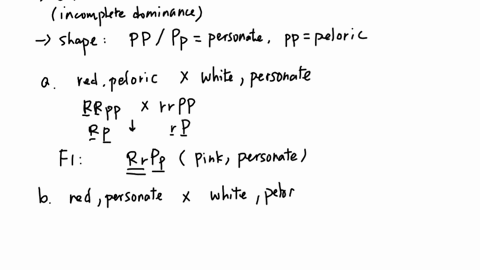 (incomplete dominance)
→ shape: PP / Pp = personate, pp = peloric
a. red, peloric x white, personate
RRpp x rrPP
Rp ↓ rP
F1: RrPp (pink, personate)
b. red, personate x white, pelor